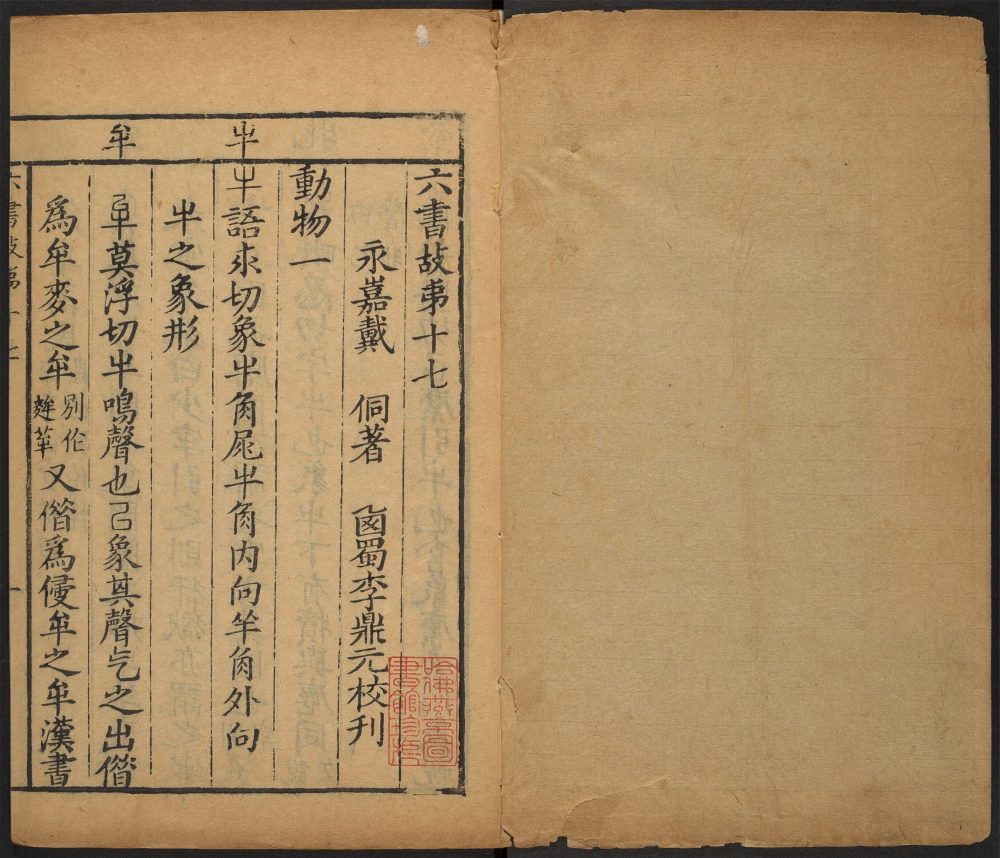 六書故弟十七
永嘉戴　侗著　𠧧蜀李鼎元校刊
動物一
牛語求切象牛角尾牛角内向羊角外向
牛之象形
牟莫浮切牛鳴聲也㠯象其聲气之出偕
爲牟麥之牟別作䴾䍒又偕爲侵牟之牟漢書
牛
牟
六書故第十七
一
哈佛燕京圖書館珍藏